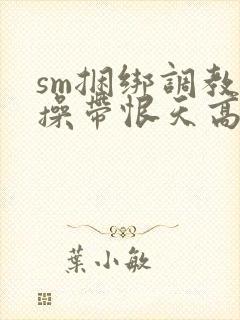 sm捆绑調教
操帶恨天高
葉小敏